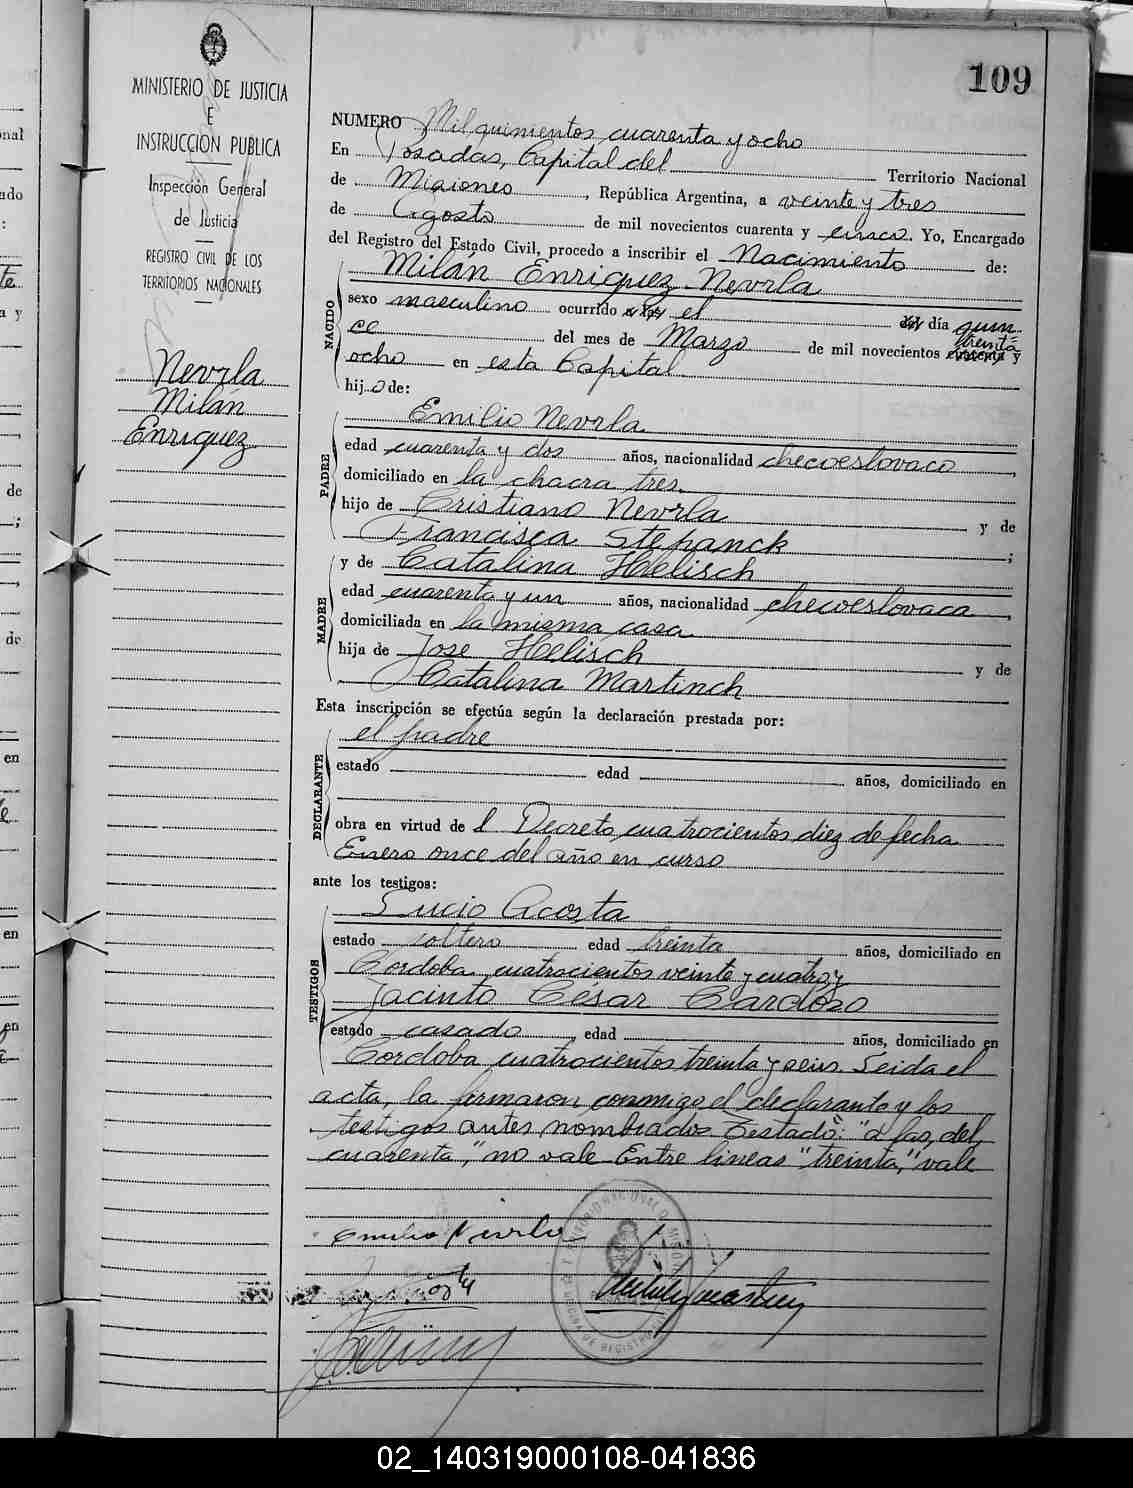 109
MINISTERIO DE JUSTICIA
E
INSTRUCCION PUBLICA
Inspección General
de Justicia
REGISTRO CIVIL DE LOS
TERRITORIOS NACIONALES
Nevrla
Milán
Enriquez
NUMERO Mil quinientos cuarenta y ocho
En Posadas, Capital del Territorio Nacional
de Misiones, República Argentina, a veinte y tres
de Agosto de mil novecientos cuarenta y cinco. Yo, Encargado
del Registro del Estado Civil, procedo a inscribir el Nacimiento de:
NACIDO
Milán Enriquez Nevrla
sexo masculino ocurrido a las el del día quin
ce del mes de Marzo de mil novecientos cuarenta treinta y
ocho en esta Capital
hijo de:
PADRE
Emilio Nevrla
edad cuarenta y dos años, nacionalidad checoeslovaco,
domiciliado en la chacra tres.
hijo de Cristiano Nevrla y de
Francisca Stepanck;
MADRE
y de Catalina Helisch
edad cuarenta y un años, nacionalidad checoeslovaca,
domiciliada en la misma casa
hija de José Helisch y de
Catalina Martinch
Esta inscripción se efectúa según la declaración prestada por:
DECLARANTE
el padre
estado edad años, domiciliado en
obra en virtud de l Decreto cuatrocientos diez de fecha
Enero once del año en curso
ante los testigos:
TESTIGOS
Lucio Acosta
estado soltero edad treinta años, domiciliado en
Cordoba cuatrocientos veinte y cuatro y
Jacinto César Cardozo
estado casado, edad años, domiciliado en
Cordoba cuatrocientos treinta y seis. Leida el
acta, la firmaron conmigo el declarante y los
testigos antes nombrados Testado: "a las, del,
cuarenta," no vale Entre lineas "treinta," vale
Emilio Nevrla
02_140319000108-041836